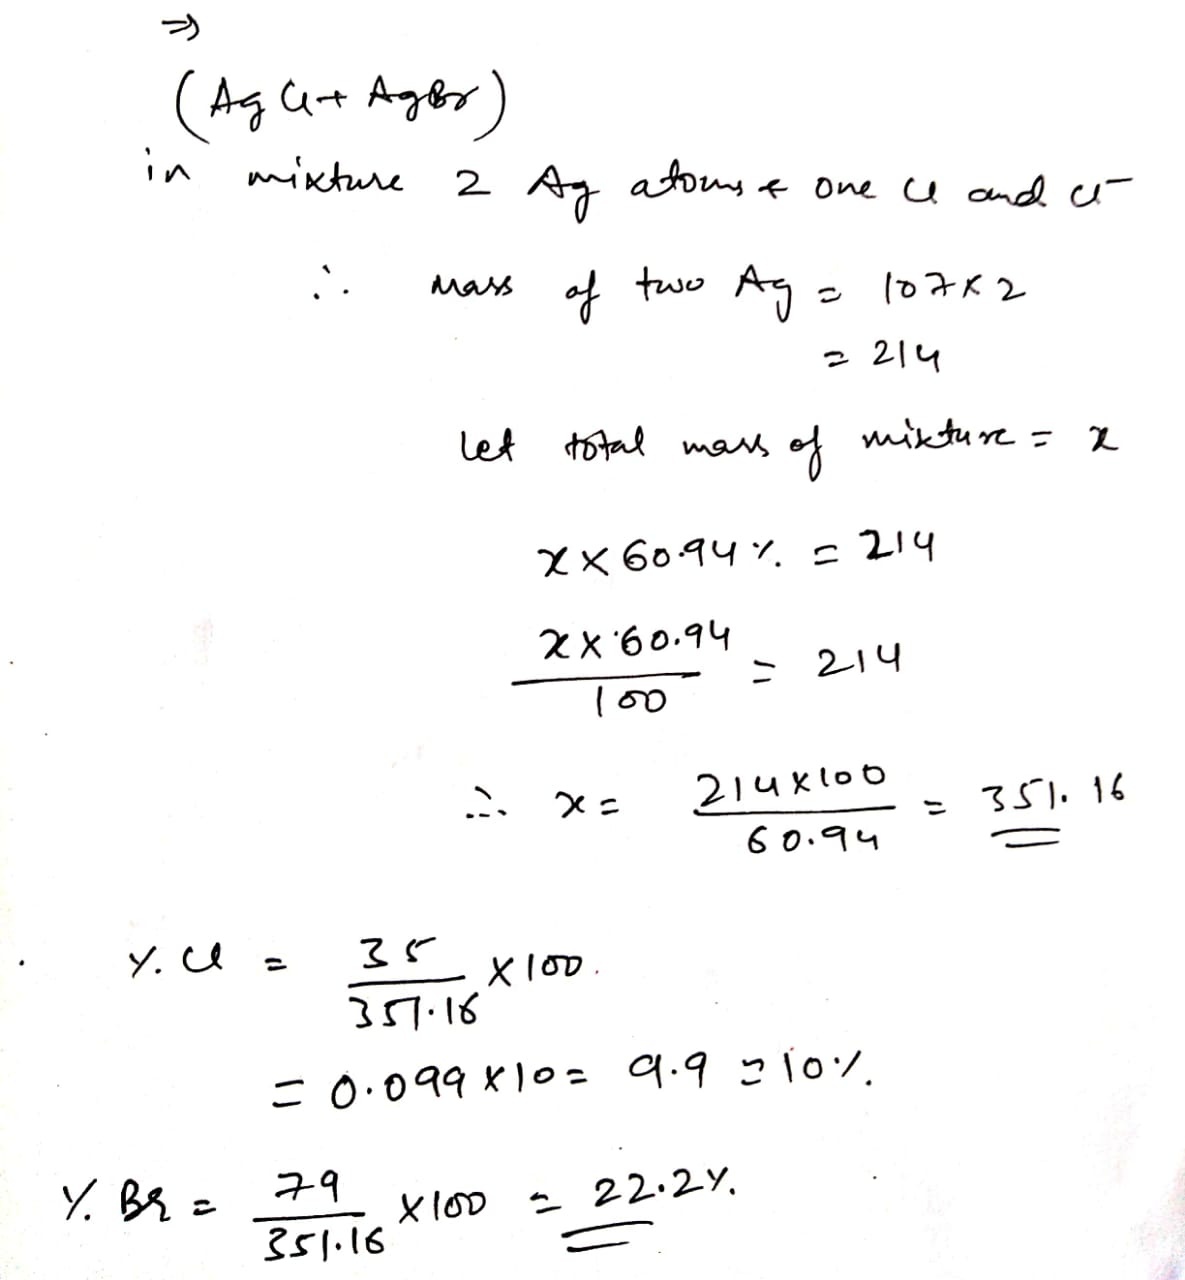 ⇒
(AgCl + AgBr)
in mixture 2 Ag atoms & one Cl and Cl⁻
∴ mass of two Ag = 107 × 2
= 214
let total mass of mixture = x
x × 60.94 % = 214
x × 60.94 / 100 = 214
∴ x = 214 × 100 / 60.94 = 351.16
% Cl = 35 / 351.16 × 100.
= 0.099 × 10 = 9.9 = 10 %.
% Br = 79 / 351.16 × 100 = 22.2 %.